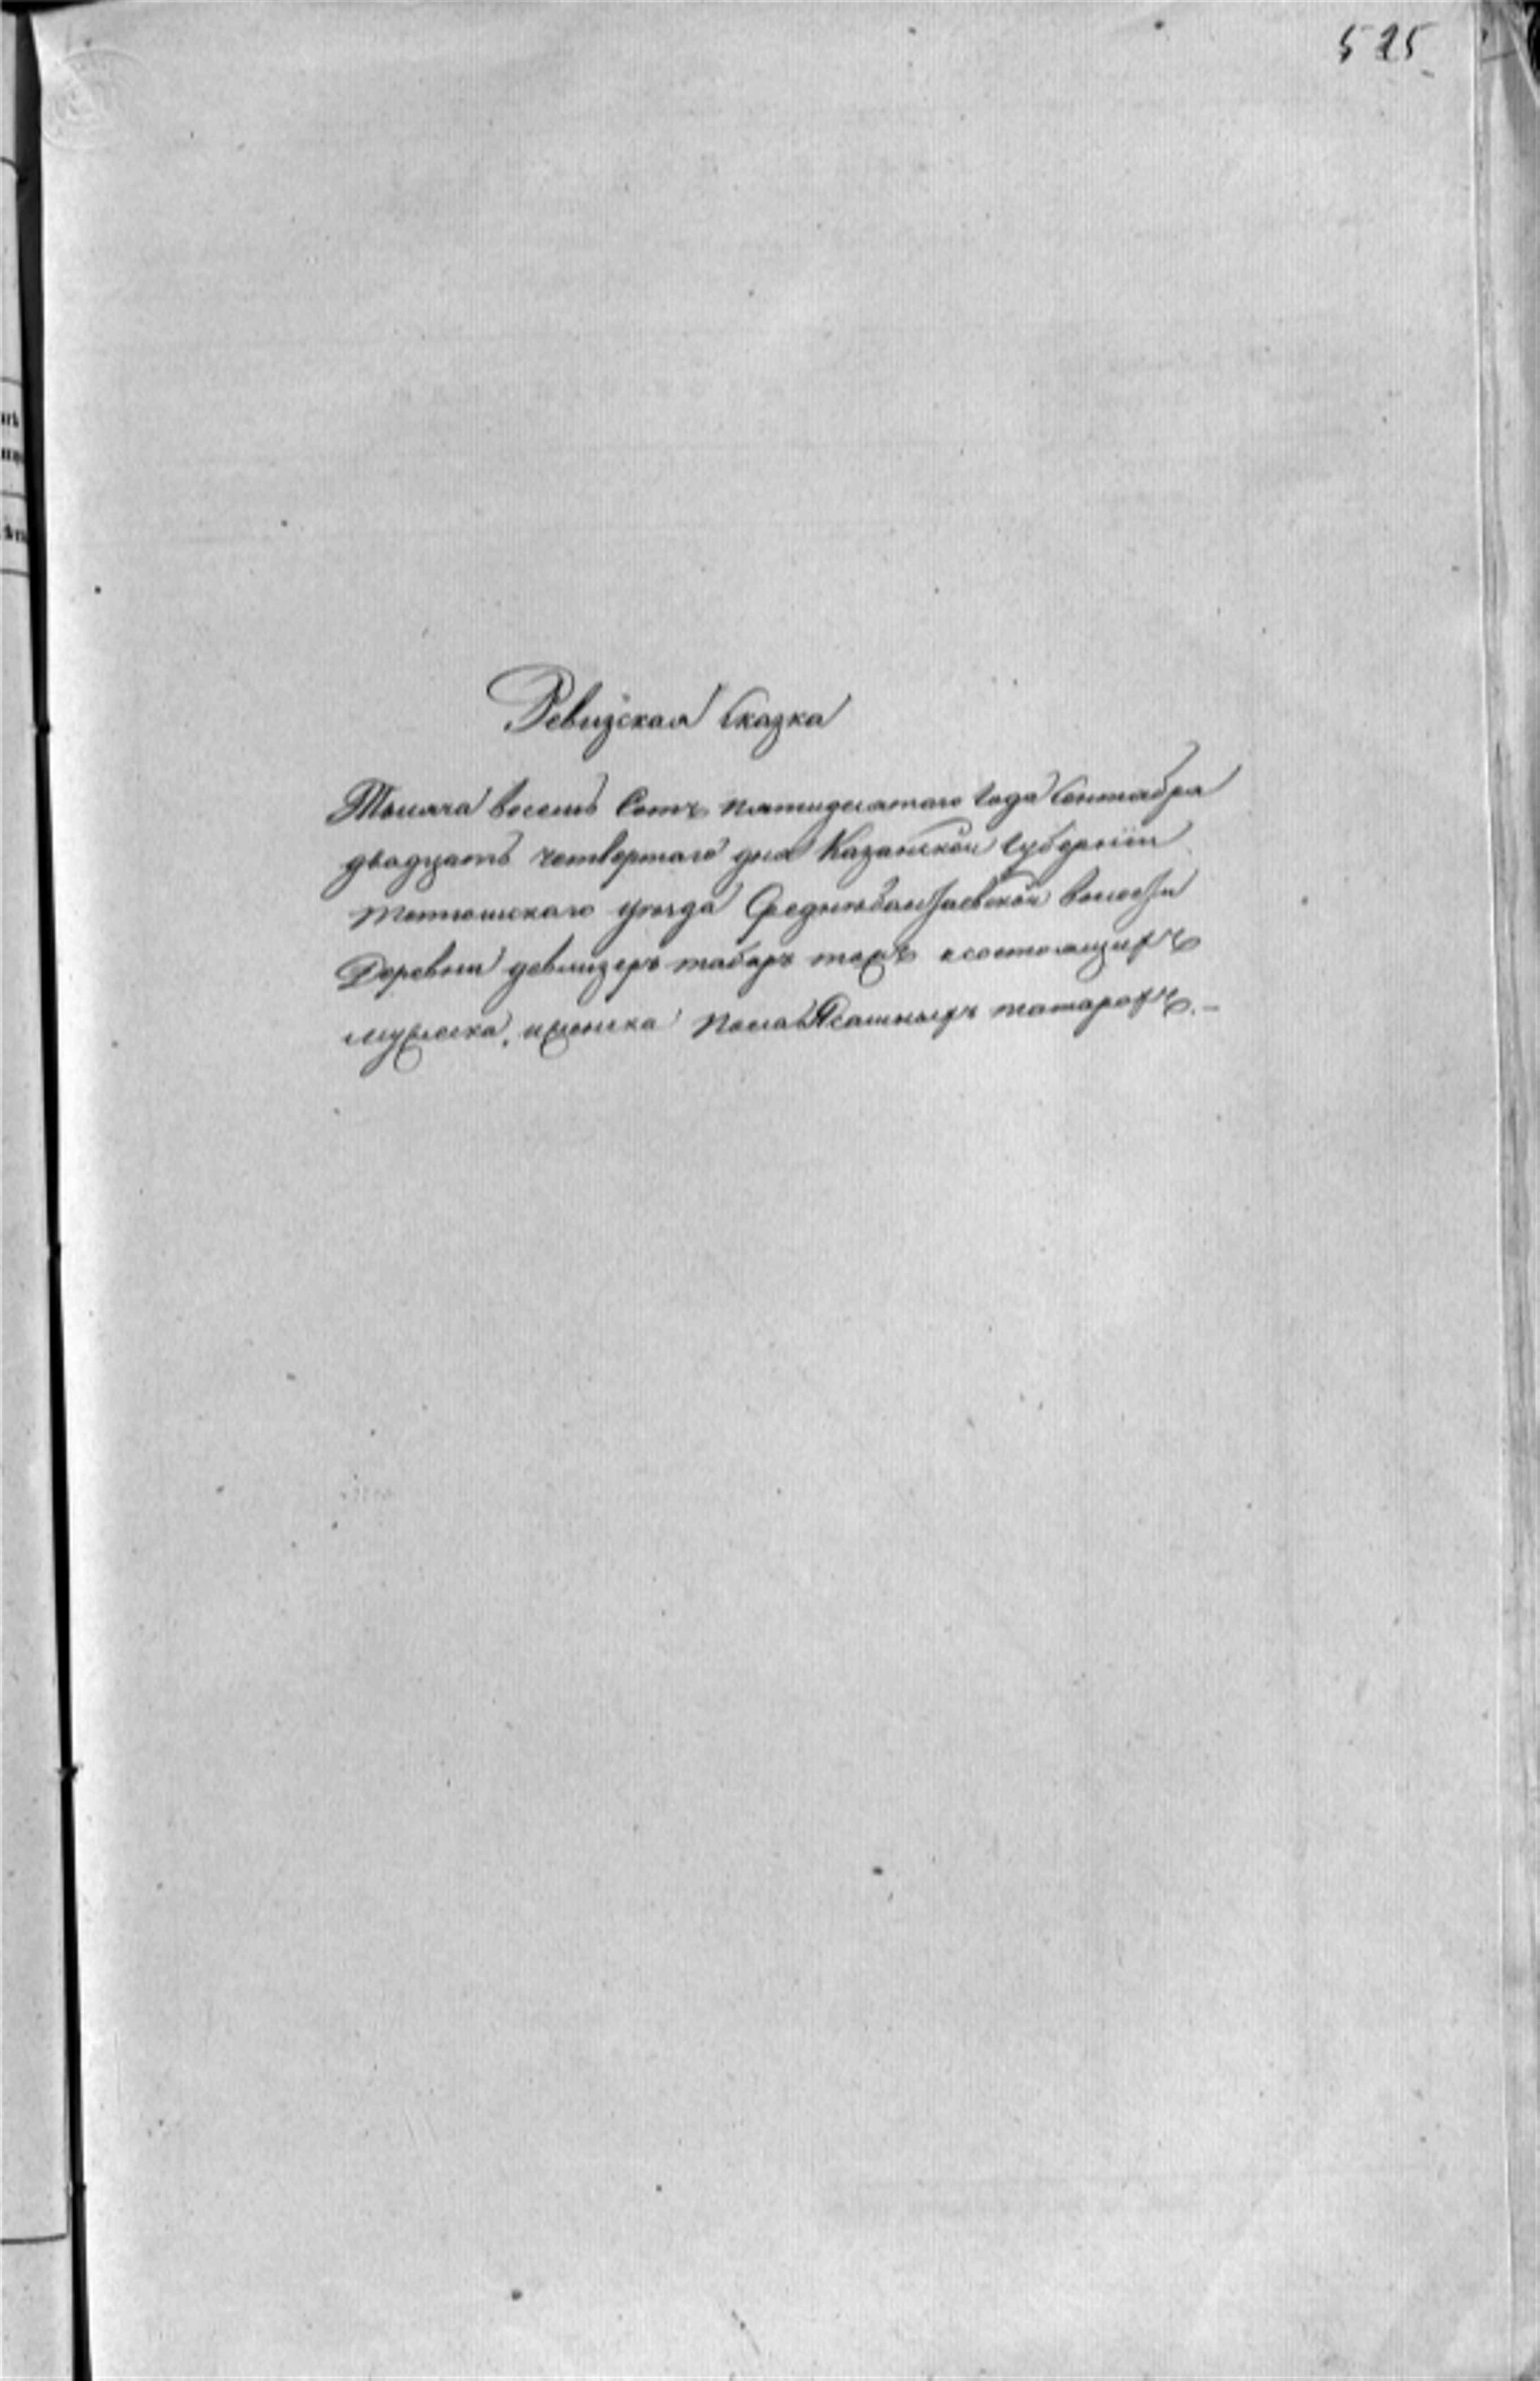 525
Ревизская Сказка
Тысяча восемь Сотъ пятидесятаго года Сентября
двадцать четвертаго дня Казанской Губерніи
тетюшскаго уѣзда Среднебалтаевской волости
Деревни табаръ о состоящихъ
мужеска, и женска пола Ясашныхъ татарахъ.-